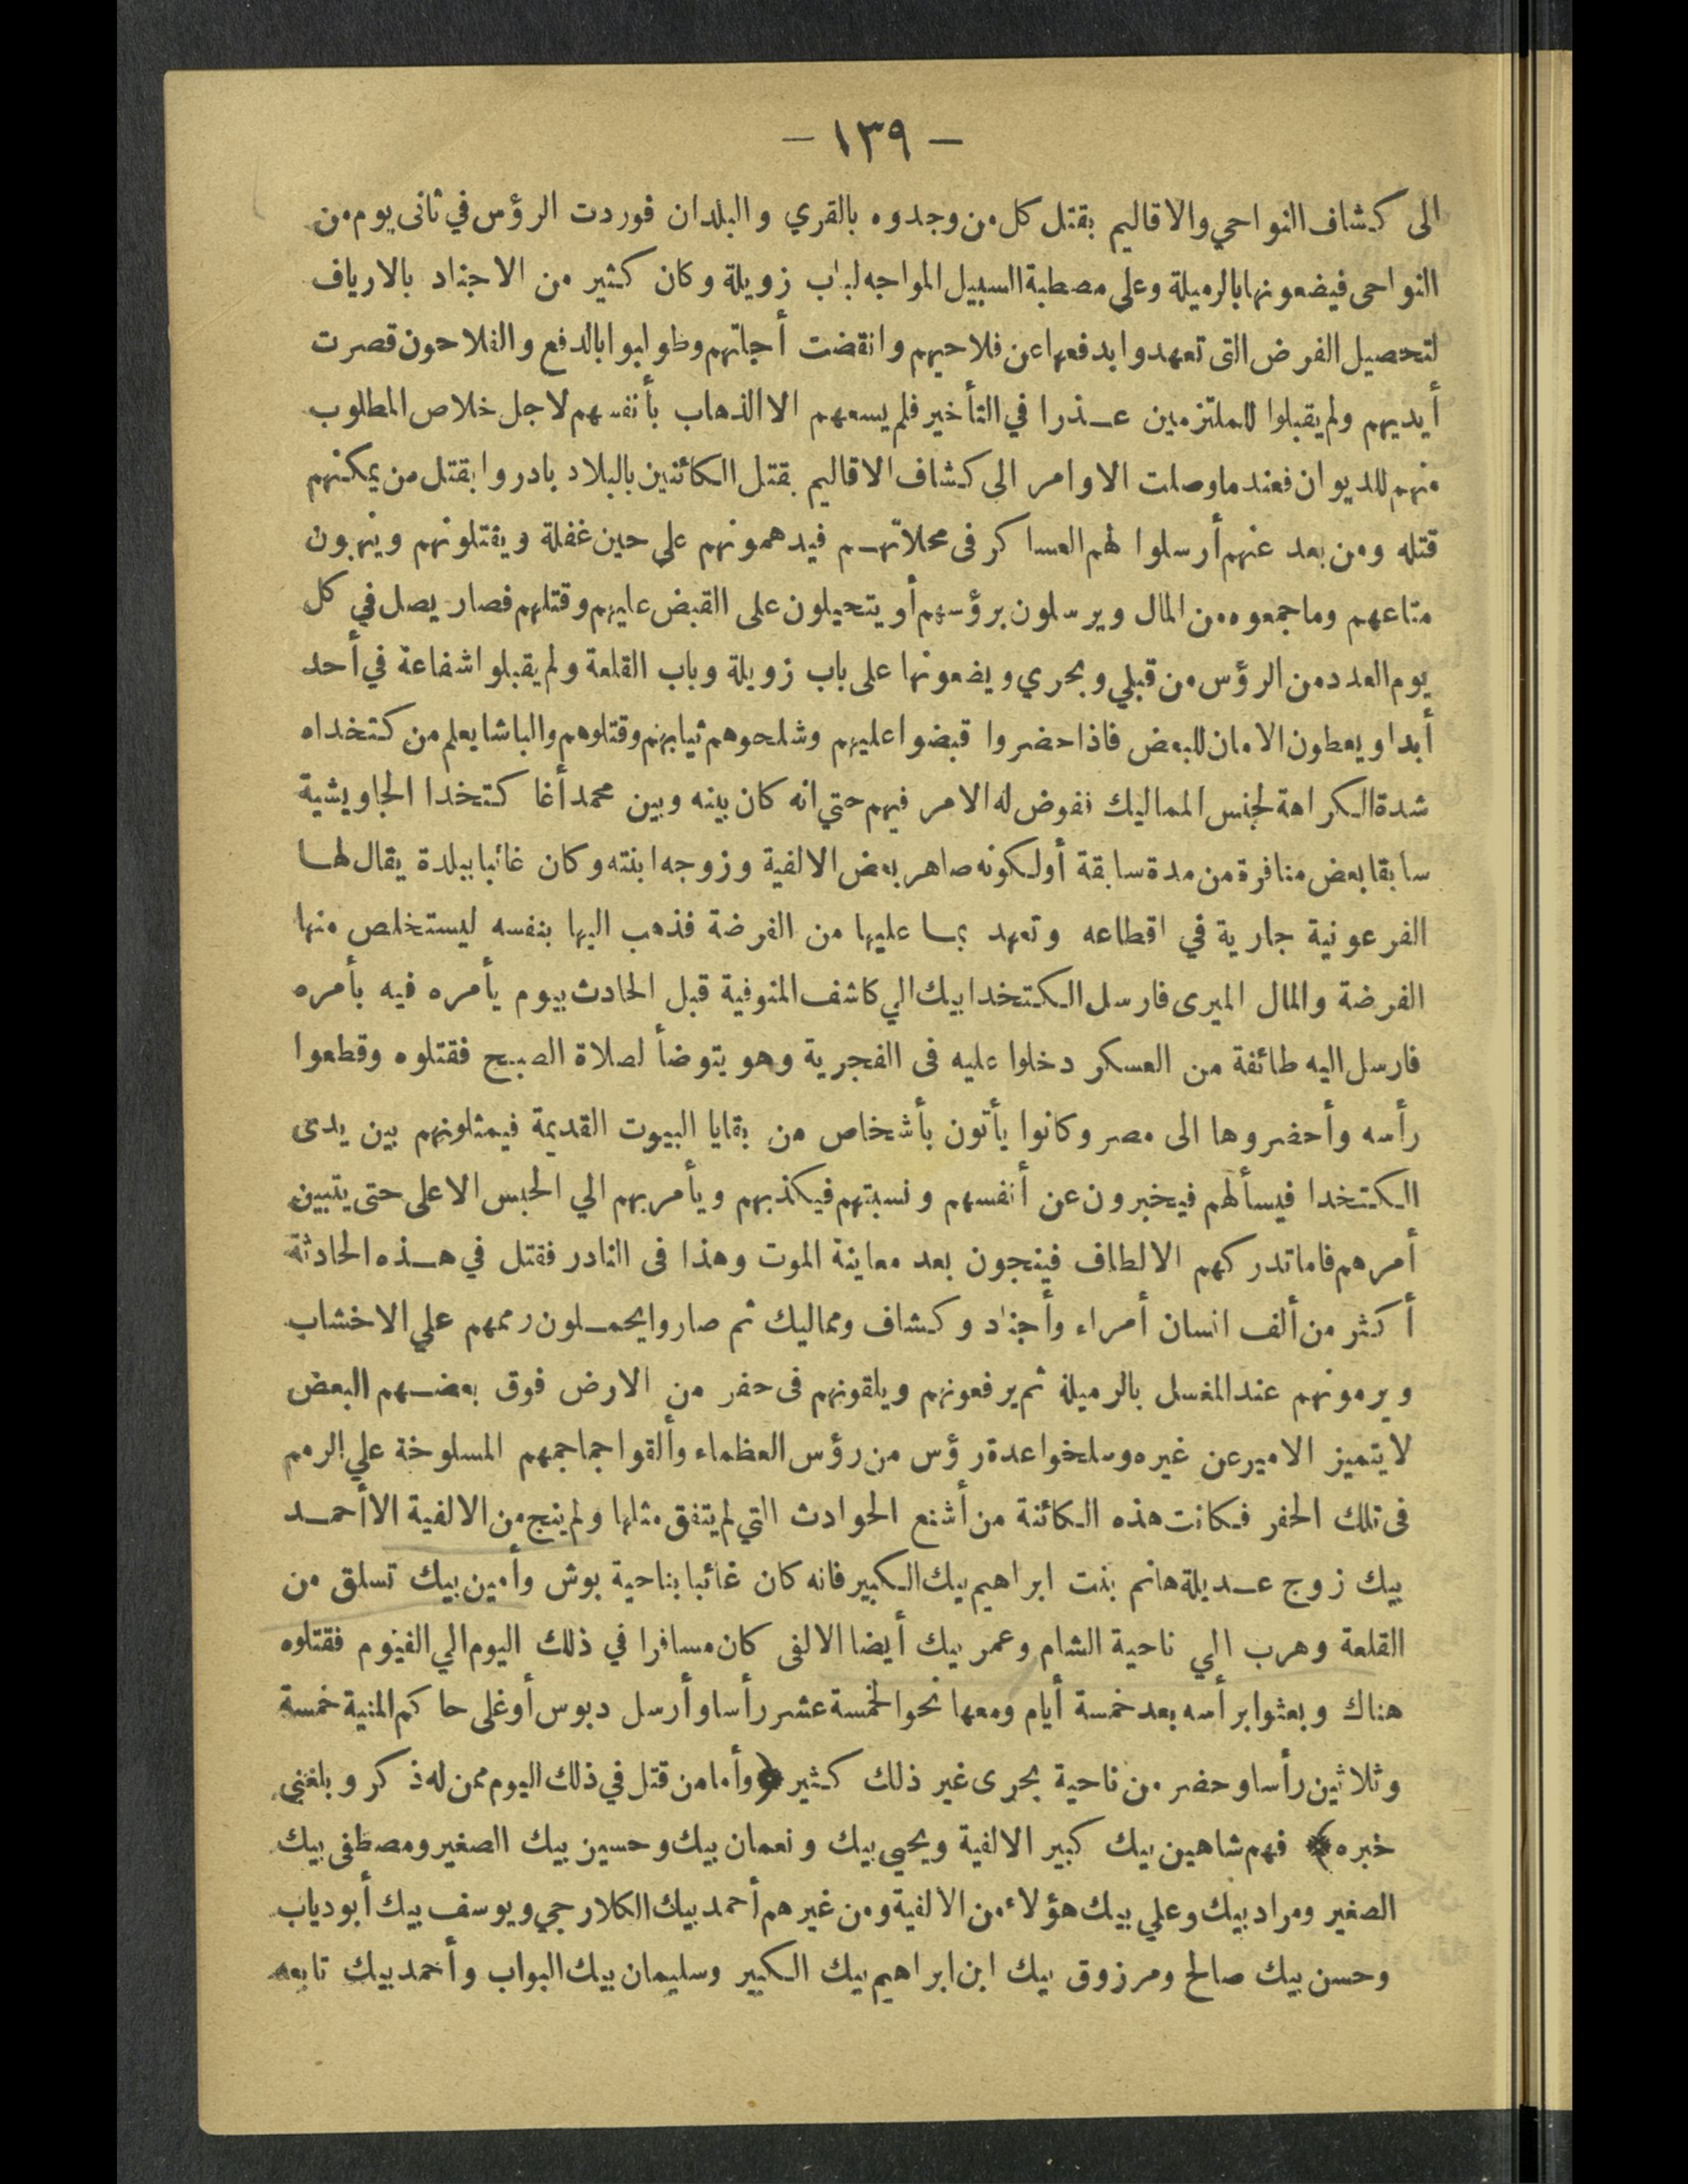 — ١٣٩ —
الى كشاف النواحي والاقاليم بقتل كل من وجدوه بالقري والبلدان فوردت الرؤس في ثانى يوم من
النواحى فيضعونها بالرميلة وعلى مصطبة السبيل المواجه لباب زويلة وكان كثير من الاجناد بالارياف
لتحصيل الفرض التى تعهدوا بدفعها عن فلاحيهم وانقضت أجلتهم وطولبوا بالدفع والفلاحون قصرت
أيديهم ولم يقبلوا للملتزمين عذرا في التأخير فلم يسعهم الا الذهاب بأنفسهم لاجل خلاص المطلوب
منهم للديوان فعندما وصلت الاوامر الى كشاف الاقاليم بقتل الكائنين بالبلاد بادروا بقتل من يمكنهم
قتله ومن بعد عنهم أرسلوا لهم العساكر فى محلاتهم فيدهمونهم على حين غفلة ويقتلونهم وينهبون
متاعهم وما جمعوه من المال ويرسلون برؤسهم أو يتحيلون على القبض عليهم وقتلهم فصار يصل في كل
يوم العدد من الرؤس من قبلي وبحري ويضعونها على باب زويلة وباب القلعة ولم يقبلوا شفاعة في أحد
أبدا ويعطون الامان للبعض فاذا حضروا قبضوا عليهم وشلحوهم ثيابهم وقتلوهم والباشا يعلم من كتخداه
شدة الكراهة لجنس المماليك نفوض له الامر فيهم حتي انه كان بينه وبين محمد أغا كتخدا الجاويشية
سابقا بعض منافرة من مدة سابقة أو لكونه صاهر بعض الالفية وزوجه ابنته وكان غائبا ببلدة يقال لها
الفرعونية جارية في اقطاعه وتعهد بما عليها من الفرضة فذهب اليها بنفسه ليستخلص منها
الفرضة والمال الميرى فارسل الكتخدا بيك الي كاشف المنوفية قبل الحادث بيوم يأمره فيه بأمره
فارسل اليه طائفة من العسكر دخلوا عليه فى الفجرية وهو يتوضأ لصلاة الصبح فقتلوه وقطعوا
رأسه وأحضروها الى مصر وكانوا يأتون بأشخاص من بقايا البيوت القديمة فيمثلونهم بين يدى
الكتخدا فيسألهم فيخبرون عن أنفسهم ونسبتهم فيكذبهم ويأمر بهم الي الحبس الاعلى حتى يتبين
أمرهم فاما تدركهم الالطاف فينجون بعد معاينة الموت وهذا فى النادر فقتل في هذه الحادثة
أكثر من ألف انسان أمراء وأجناد وكشاف ومماليك ثم صاروا يحملون رممهم علي الاخشاب
ويرمونهم عند المغسل بالرميلة ثم يرفعونهم ويلقونهم فى حفر من الارض فوق بعضهم البعض
لا يتميز الامير عن غيره وسلخوا عدة رؤس من رؤس العظماء وألقوا جماجمهم المسلوخة علي الرمم
فى تلك الحفر فكانت هذه الكائنة من أشنع الحوادث التي لم يتفق مثلها ولم ينج من الالفية الا أحمد
بيك زوج عديلة هانم بنت ابراهيم بيك الكبير فانه كان غائبا بناحية بوش وأمين بيك تسلق من
القلعة وهرب الي ناحية الشام وعمر بيك أيضا الالفى كان مسافرا في ذلك اليوم الي الفيوم فقتلوه
هناك وبعثوا برأسه بعد خمسة أيام ومعها نحو الخمسة عشر رأسا وأرسل دبوس أوغلى حاكم المنية خمسة
وثلاثين رأسا وحضر من ناحية بحرى غير ذلك كثير ﴿وأما من قتل في ذلك اليوم ممن له ذكر وبلغنى
خبره﴾ فهم شاهين بيك كبير الالفية ويحيى بيك ونعمان بيك وحسين بيك الصغير ومصطفى بيك
الصغير ومراد بيك وعلي بيك هؤلاء من الالفية ومن غيرهم أحمد بيك الكلارجي ويوسف بيك أبو دياب
وحسن بيك صالح ومرزوق بيك ابن ابراهيم بيك الكبير وسليمان بيك البواب وأحمد بيك تابعه